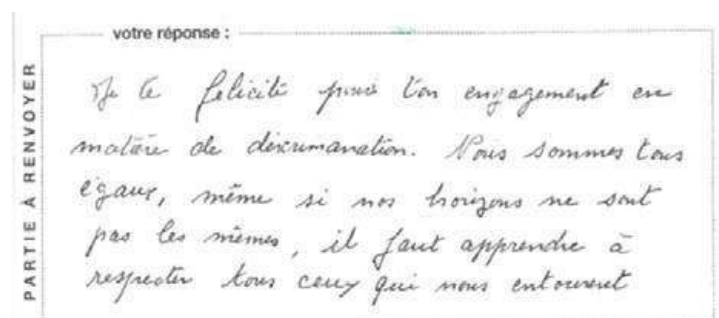 votre réponse :
PARTIE À RENVOYER
Je te félicite pour ton engagement en
matière de discrimanation. Nous sommes tous
égaux, même si nos horizons ne sont
pas les mêmes, il faut apprendre à
respecter tous ceux qui nous entourent